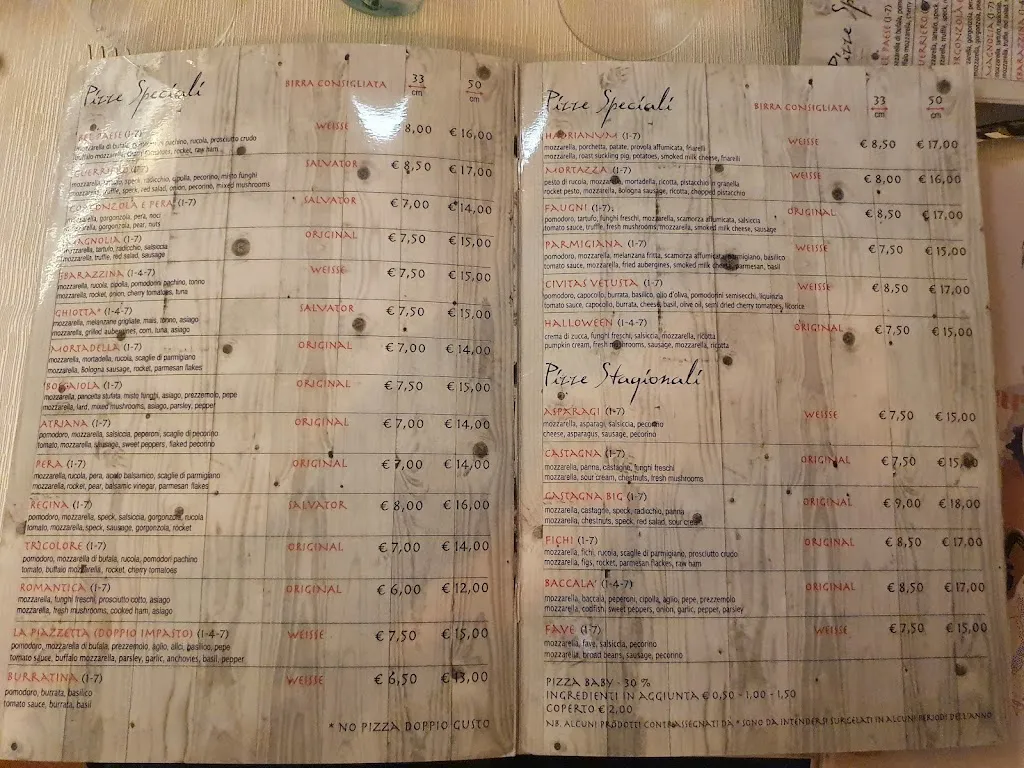 Pizze Speciali BIRRA CONSIGLIATA 33 cm 50 cm
BEL PAESE (1-7) WEISSE 8,00 € 16,00
mozzarella di bufala, pachino, rucola, prosciutto crudo
buffalo mozzarella, rocket, raw ham
GUERRIERO (1-7) SALVATOR € 8,50 € 17,00
mozzarella, speck, radicchio, cipolla, pecorino, misto funghi
mozzarella, truffle, speck, red salad, onion, pecorino, mixed mushrooms
GORGONZOLA E PERA (1-7) SALVATOR € 7,00 € 14,00
mozzarella, gorgonzola, pera, noci
mozzarella, gorgonzola, pear, nuts
MAGNOLIA (1-7) ORIGINAL € 7,50 € 15,00
mozzarella, tartufo, radicchio, salsiccia
mozzarella, truffle, red salad, sausage
BARAZZINA (1-4-7) WEISSE € 7,50 € 15,00
mozzarella, rucola, cipolla, pomodorini pachino, tonno
mozzarella, rocket, onion, cherry tomatoes, tuna
GHIOTTA* (1-4-7) SALVATOR € 7,50 € 15,00
mozzarella, melanzane grigliate, mais, tonno, asiago
mozzarella, grilled aubergines, corn, tuna, asiago
MORTADELLA (1-7) ORIGINAL € 7,00 € 14,00
mozzarella, mortadella, rucola, scaglie di parmigiano
mozzarella, Bologna sausage, rocket, parmesan flakes
BOSCAIOLA (1-7) ORIGINAL € 7,50 € 15,00
mozzarella, pancetta stufata, misto funghi, asiago, prezzemolo, pepe
mozzarella, lard, mixed mushrooms, asiago, parsley, pepper
ATRIANA (1-7) ORIGINAL € 7,00 € 14,00
pomodoro, mozzarella, salsiccia, peperoni, scaglie di pecorino
tomato, mozzarella, sausage, sweet peppers, flaked pecorino
PERA (1-7) ORIGINAL € 7,00 € 14,00
mozzarella, rucola, pera, aceto balsamico, scaglie di parmigiano
mozzarella, rocket, pear, balsamic vinegar, parmesan flakes
REGINA (1-7) SALVATOR € 8,00 € 16,00
pomodoro, mozzarella, speck, salsiccia, gorgonzola, rucola
tomato, mozzarella, speck, sausage, gorgonzola, rocket
TRICOLORE (1-7) ORIGINAL € 7,00 € 14,00
pomodoro, mozzarella di bufala, rucola, pomodori pachino
tomato, buffalo mozzarella, rocket, cherry tomatoes
ROMANTICA (1-7) ORIGINAL € 6,00 € 12,00
mozzarella, funghi freschi, prosciutto cotto, asiago
mozzarella, fresh mushrooms, cooked ham, asiago
LA PIAZZETTA (DOPPIO IMPASTO) (1-4-7) WEISSE € 7,50 € 15,00
pomodoro, mozzarella di bufala, prezzemolo, aglio, alici, basilico, pepe
tomato sauce, buffalo mozzarella, parsley, garlic, anchovies, basil, pepper
BURRATINA (1-7) WEISSE € 6,50 € 13,00
pomodoro, burrata, basilico
tomato sauce, burrata, basil
* NO PIZZA DOPPIO GUSTO
Pizze Speciali BIRRA CONSIGLIATA 33 cm 50 cm
HADRIANUM (1-7) WEISSE € 8,50 € 17,00
mozzarella, porchetta, patate, provola affumicata, friarelli
mozzarella, roast suckling pig, potatoes, smoked milk cheese, friarelli
MORTAZZA (1-7) WEISSE € 8,00 € 16,00
pesto di rucola, mozzarella, mortadella, ricotta, pistacchio in granella
rocket pesto, mozzarella, Bologna sausage, ricotta, chopped pistacchio
FAUGNI (1-7) ORIGINAL € 8,50 € 17,00
pomodoro, tartufo, funghi freschi, mozzarella, scamorza affumicata, salsiccia
tomato sauce, truffle, fresh mushrooms, mozzarella, smoked milk cheese, sausage
PARMIGIANA (1-7) WEISSE € 7,50 € 15,00
pomodoro, mozzarella, melanzana fritta, scamorza affumicata, parmigiano, basilico
tomato sauce, mozzarella, fried aubergines, smoked milk cheese, parmesan, basil
CIVITAS VETUSTA (1-7) WEISSE € 8,50 € 17,00
pomodoro, capocollo, burrata, basilico, olio d'oliva, pomodorini semisecchi, liquirizia
tomato sauce, capocollo, burrata, cheese, basil, olive oil, semi dried cherry tomatoes, licorice
HALLOWEEN (1-4-7) ORIGINAL € 7,50 € 15,00
crema di zucca, funghi freschi, salsiccia, mozzarella, ricotta
pumpkin cream, fresh mushrooms, sausage, mozzarella, ricotta
Pizze Stagionali
ASPARAGI (1-7) WEISSE € 7,50 € 15,00
mozzarella, asparagi, salsiccia, pecorino
cheese, asparagus, sausage, pecorino
CASTAGNA (1-7) ORIGINAL € 7,50 € 15,00
mozzarella, panna, castagne, funghi freschi
mozzarella, sour cream, chestnuts, fresh mushrooms
CASTAGNA BIG (1-7) ORIGINAL € 9,00 € 18,00
mozzarella, castagne, speck, radicchio, panna
mozzarella, chestnuts, speck, red salad, sour cream
FICHI (1-7) ORIGINAL € 8,50 € 17,00
mozzarella, fichi, rucola, scaglie di parmigiano, prosciutto crudo
mozzarella, figs, rocket, parmesan flackes, raw ham
BACCALA' (1-4-7) ORIGINAL € 8,50 € 17,00
mozzarella, baccalà, peperoni, cipolla, aglio, pepe, prezzemolo
mozzarella, codfish, sweet peppers, onion, garlic, pepper, parsley
FAVE (1-7) WEISSE € 7,50 € 15,00
mozzarella, fave, salsiccia, pecorino
mozzarella, broad beans, sausage, pecorino
PIZZA BABY - 30 %
INGREDIENTI IN AGGIUNTA € 0,50 - 1,00 - 1,50
COPERTO € 2,00
NB. ALCUNI PRODOTTI CONTRASSEGNATI DA * SONO DA INTENDERSI SURGELATI IN ALCUNI PERIODI DELL'ANNO